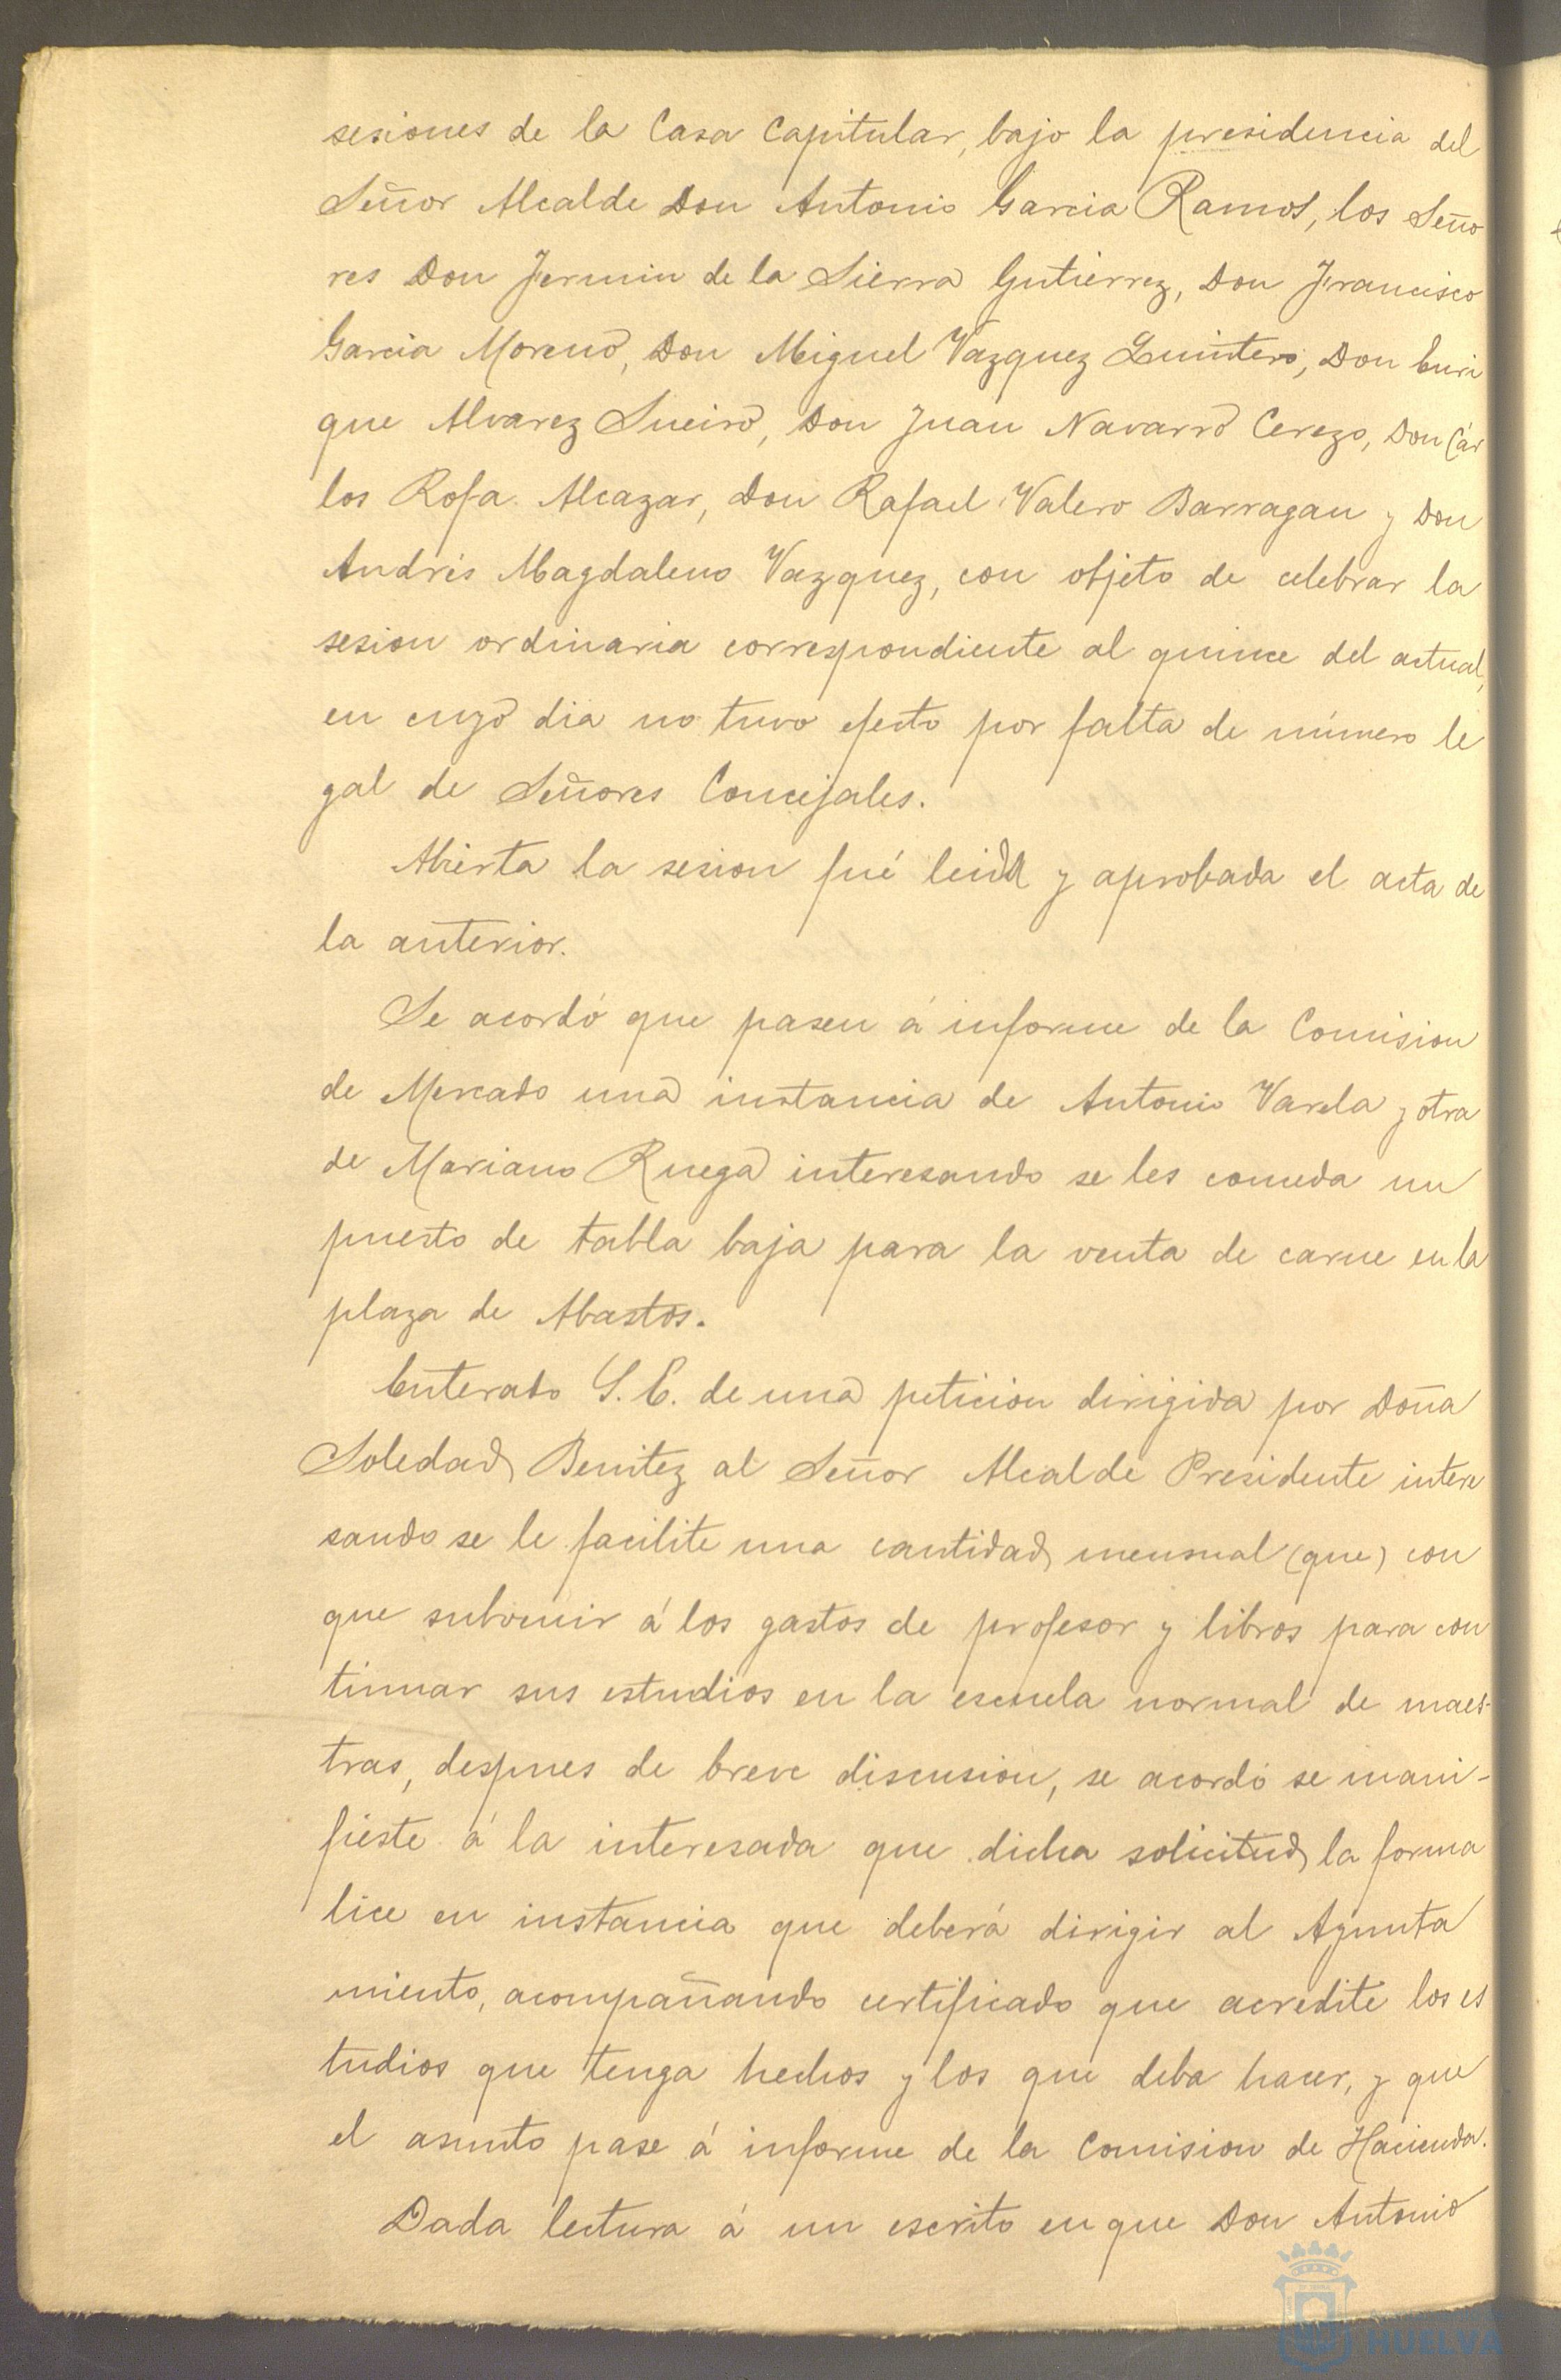 sesiones de la Casa Capitular, bajo la presidencia del
Señor Alcalde Don Antonio Garcia Ramos, los Seño
res Don Fermin de la Sierra Gutierrez, Don Francisco
Garcia Moreno, Don Miguel Vazquez Quintero, Don Enri
que Alvarez Sueiro, Don Juan Navarro Cerezo, Don Cár
los Rofa Alcazar, Don Rafael Valero Barragan y Don
Andrés Magdaleno Vazquez, con objeto de celebrar la
sesion ordinaria correspondiente al quince del actual,
en cuyo dia no tuvo efecto por falta de número le
gal de Señores Concejales.
Abierta la sesion fué leida y aprobada el acta de
la anterior.
Se acordó que pasen á informe de la Comision
de Mercado una instancia de Antonio Varela y otra
de Mariano Ruega interesando se les conceda un
puesto de tabla baja para la venta de carne en la
plaza de Abastos.
Enterado S. E. de una peticion dirigida por Doña
Soledad Benitez al Señor Alcalde Presidente intere
sando se le facilite una cantidad mensual (que) con
que subvenir á los gastos de profesor y libros para con
tinuar sus estudios en la escuela normal de maes-
tras, despues de breve discusion, se acordó se mani-
fieste á la interesada que dicha solicitud la forma
lice en instancia que deberá dirigir al Ayunta
miento, acompañando certificado que acredite los es
tudios que tenga hechos y los que deba hacer, y que
el asunto pase á informe de la Comision de Hacienda.
Dada lectura á un escrito en que Don Antonio
HUELVA